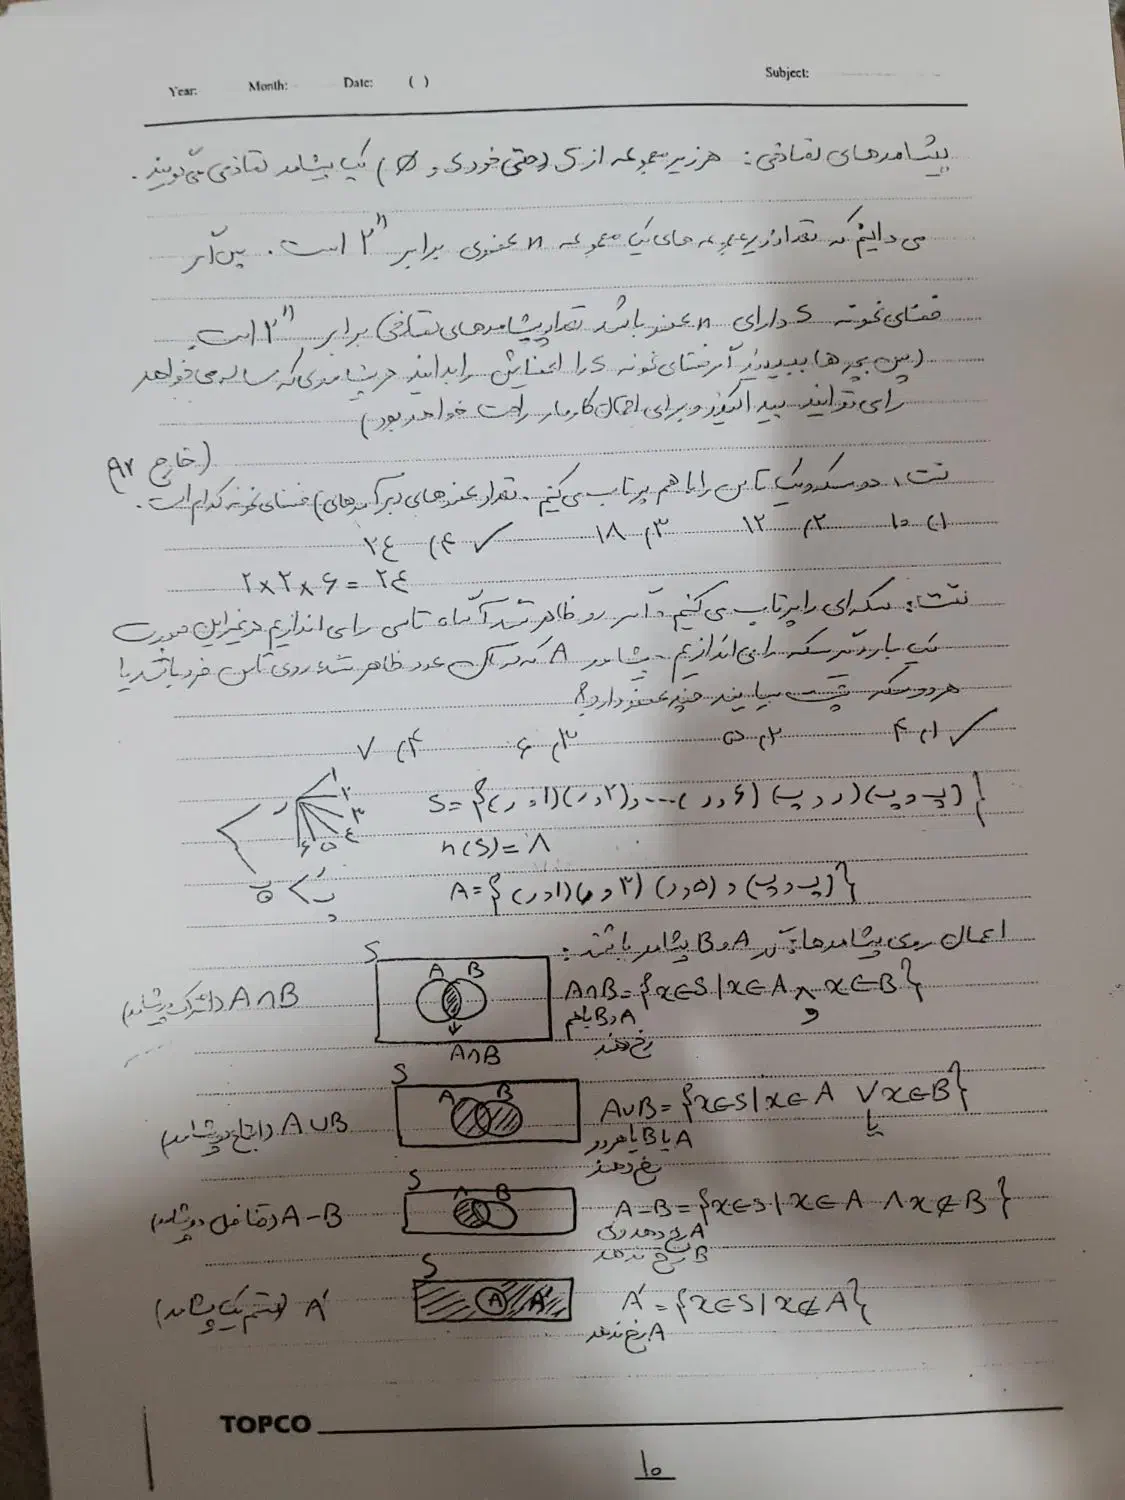 Year: Month: Date: ( ) Subject:
پیشامدهای تصادفی: هر زیرمجموعه از S (حتی خود S و Ø) یک پیشامد تصادفی می‌گویند.
می دانیم که تعداد زیرمجموعه های یک مجموعه n عضوی برابر ۲ⁿ است. پس اگر
فضای نمونه S دارای n عضو باشد تعداد پیشامدهای تصادفی برابر ۲ⁿ است.
(پس بچه ها ببینید اگر فضای نمونه S را اعضایش را بدانید هر پیشامدی که مساله می خواهد
را می توانید پیدا کنید و برای احتمال کارمان راحت خواهد بود)
(خارج ۹۲
تست: دو سکه و یک تاس را با هم پرتاب می کنیم. تعداد عضوهای (برآمدهای) فضای نمونه کدام است.
۱) ۱۰ ۲) ۱۲ ۳) ۱۸ ۴) ۲۴ ✓
۲×۲×۶ = ۲۴
تست: سکه ای را پرتاب می کنیم. اگر رو ظاهر شد آنگاه تاس را می اندازیم در غیر این صورت
یک بار دیگر سکه را می اندازیم. پیشامد A که در آن عدد ظاهر شده روی تاس فرد باشد یا
هر دو سکه پشت بیایند چند عضو دارد؟
✓ ۱) ۴ ۲) ۵ ۳) ۶ ۴) ۷
S = {(ر,۱)(ر,۲),...(ر,۶)(پ,ر)(پ,پ)}
ر ۱ ۲ ۳ ۴ ۵ ۶
n(S) = ۸
پ ر پ
A = {(ر,۱)(ر,۳)(ر,۵),(پ,پ)}
اعمال روی پیشامدها: اگر A و B پیشامد باشند:
A∩B (اشتراک دو پیشامد) S A B A∩B A∩B = {x∈S | x∈A ∧ x∈B}
و
A و B با هم
رخ دهند
A∪B (اجتماع دو پیشامد) S A B A∪B = {x∈S | x∈A ∨ x∈B}
یا
A یا B یا هر دو
رخ دهند
A-B (تفاضل دو پیشامد) S A B A-B = {x∈S | x∈A ∧ x∉B}
A رخ دهد ولی
B رخ ندهد
A' (متمم یک پیشامد) S A A' A' = {x∈S | x∉A}
A رخ ندهد
TOPCO
۱۰